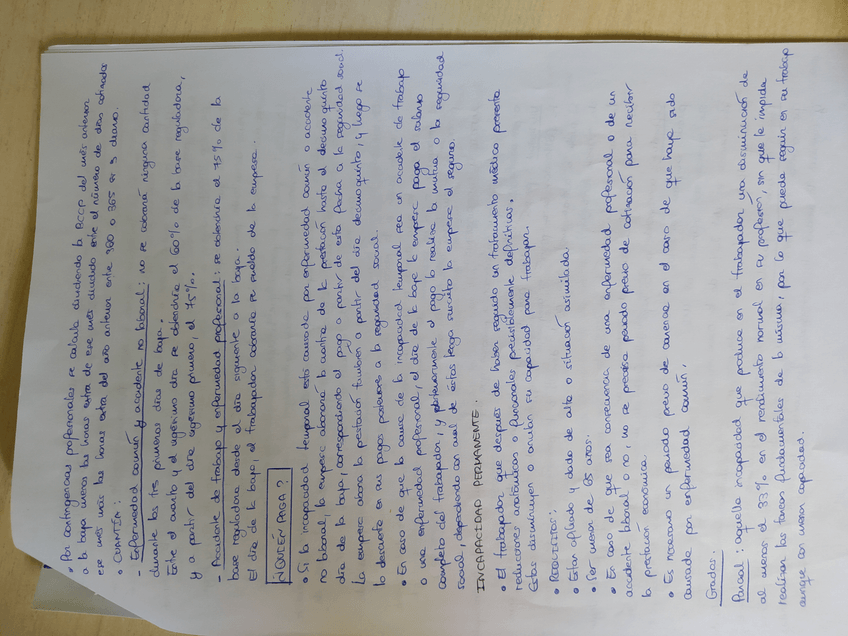 • Por contingencias profesionales se calcula dividiendo la BCCP del mes anterior
a la baja menos las horas extra de ese mes dividido entre el número de días cotizados
ese mes más las horas extra del año anterior entre 360 o 365 si es diario.
• CUANTÍA:
- Enfermedad común y accidente no laboral: no se cobrará ninguna cantidad
durante los tres primeros días de baja.
Entre el cuarto y el vigésimo día se obtendría el 60% de la base reguladora,
y a partir del día vigésimo primero, el 75%.
- Accidente de trabajo y enfermedad profesional: se obtendría el 75% de la
base reguladora desde el día siguiente a la baja.
El día de la baja, el trabajador cobraría su sueldo de la empresa.
¿QUIÉN PAGA?
• Si la incapacidad temporal está causada por enfermedad común o accidente
no laboral, la empresa abonará la cuantía de la prestación hasta el décimo quinto
día de la baja, correspondiendo el pago a partir de esta fecha a la seguridad social.
La empresa abona la prestación también a partir del día decimoquinto, y luego se
lo descuenta en sus pagos posteriores a la seguridad social.
• En caso de que la causa de la incapacidad temporal sea un accidente de trabajo
o una enfermedad profesional, el día de la baja la empresa paga el salario
completo del trabajador, y posteriormente el pago lo realiza la mutua o la seguridad
social, dependiendo con cual de éstas tenga suscrito la empresa el seguro.
INCAPACIDAD PERMANENTE.
• El trabajador que después de haber seguido un tratamiento médico presenta
reducciones anatómicas o funcionales previsiblemente definitivas.
Estas disminuyen o anulan su capacidad para trabajar.
• REQUISITOS:
• Estar afiliado y dado de alta o situación asimilada.
• Ser menor de 65 años.
• En caso de que sea consecuencia de una enfermedad profesional o de un
accidente laboral o no, no se precisa periodo previo de cotización para recibir
la prestación económica.
• Es necesario un periodo previo de carencia en el caso de que haya sido
causada por enfermedad común.
Grados:
Parcial: aquella incapacidad que produce en el trabajador una disminución de
al menos el 33% en el rendimiento normal en su profesión, sin que le impida
realizar las tareas fundamentales de la misma, por lo que puede seguir en su trabajo
aunque con menor capacidad.